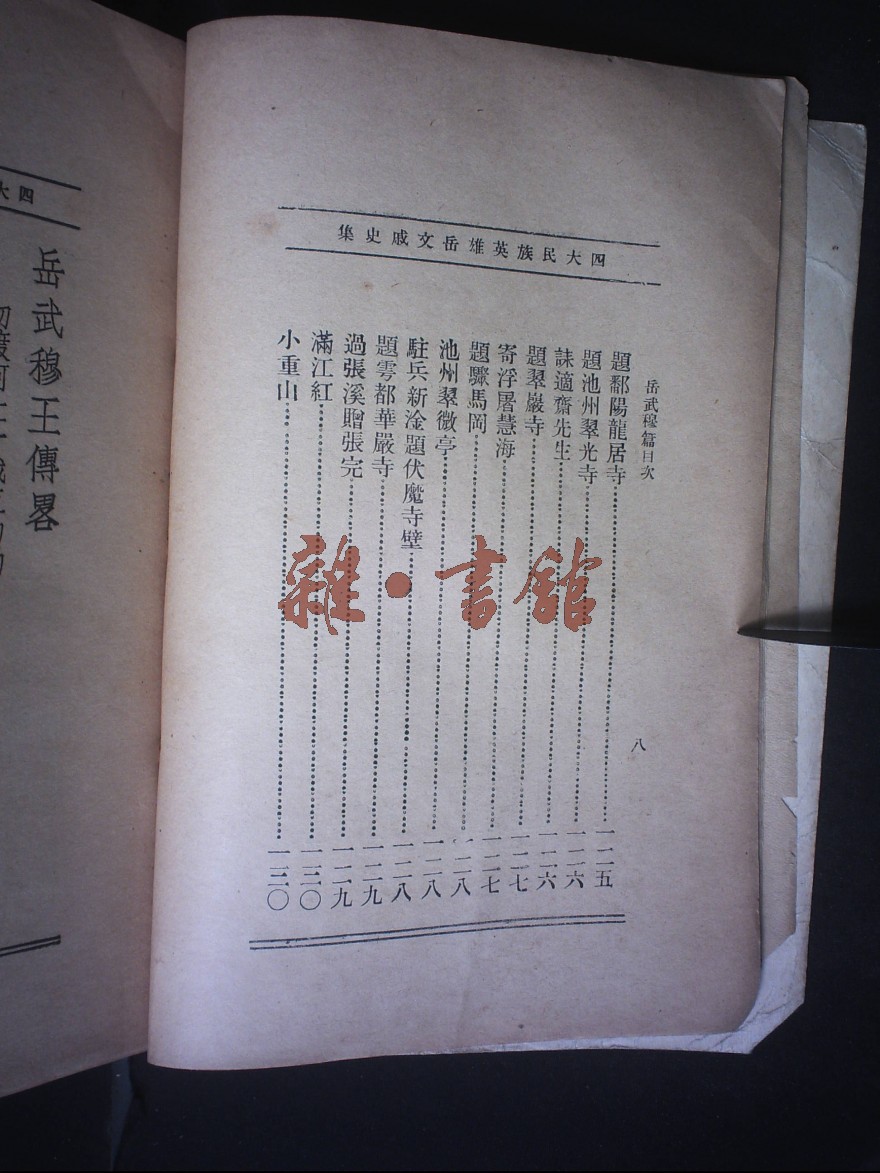 四大民族英雄岳文戚史集
岳武穆篇目次
八
題鄱陽龍居寺 一二五
題池州翠光寺 一二六
誄適齋先生 一二六
題翠巖寺 一二七
寄浮屠慧海 一二七
題驟馬岡 一二八
池州翠微亭 一二八
駐兵新淦題伏魔寺壁 一二八
題雩都華嚴寺 一二九
過張溪贈張完 一二九
滿江紅 一三〇
小重山 一三〇
四大
岳武穆王傳畧
雜·書館